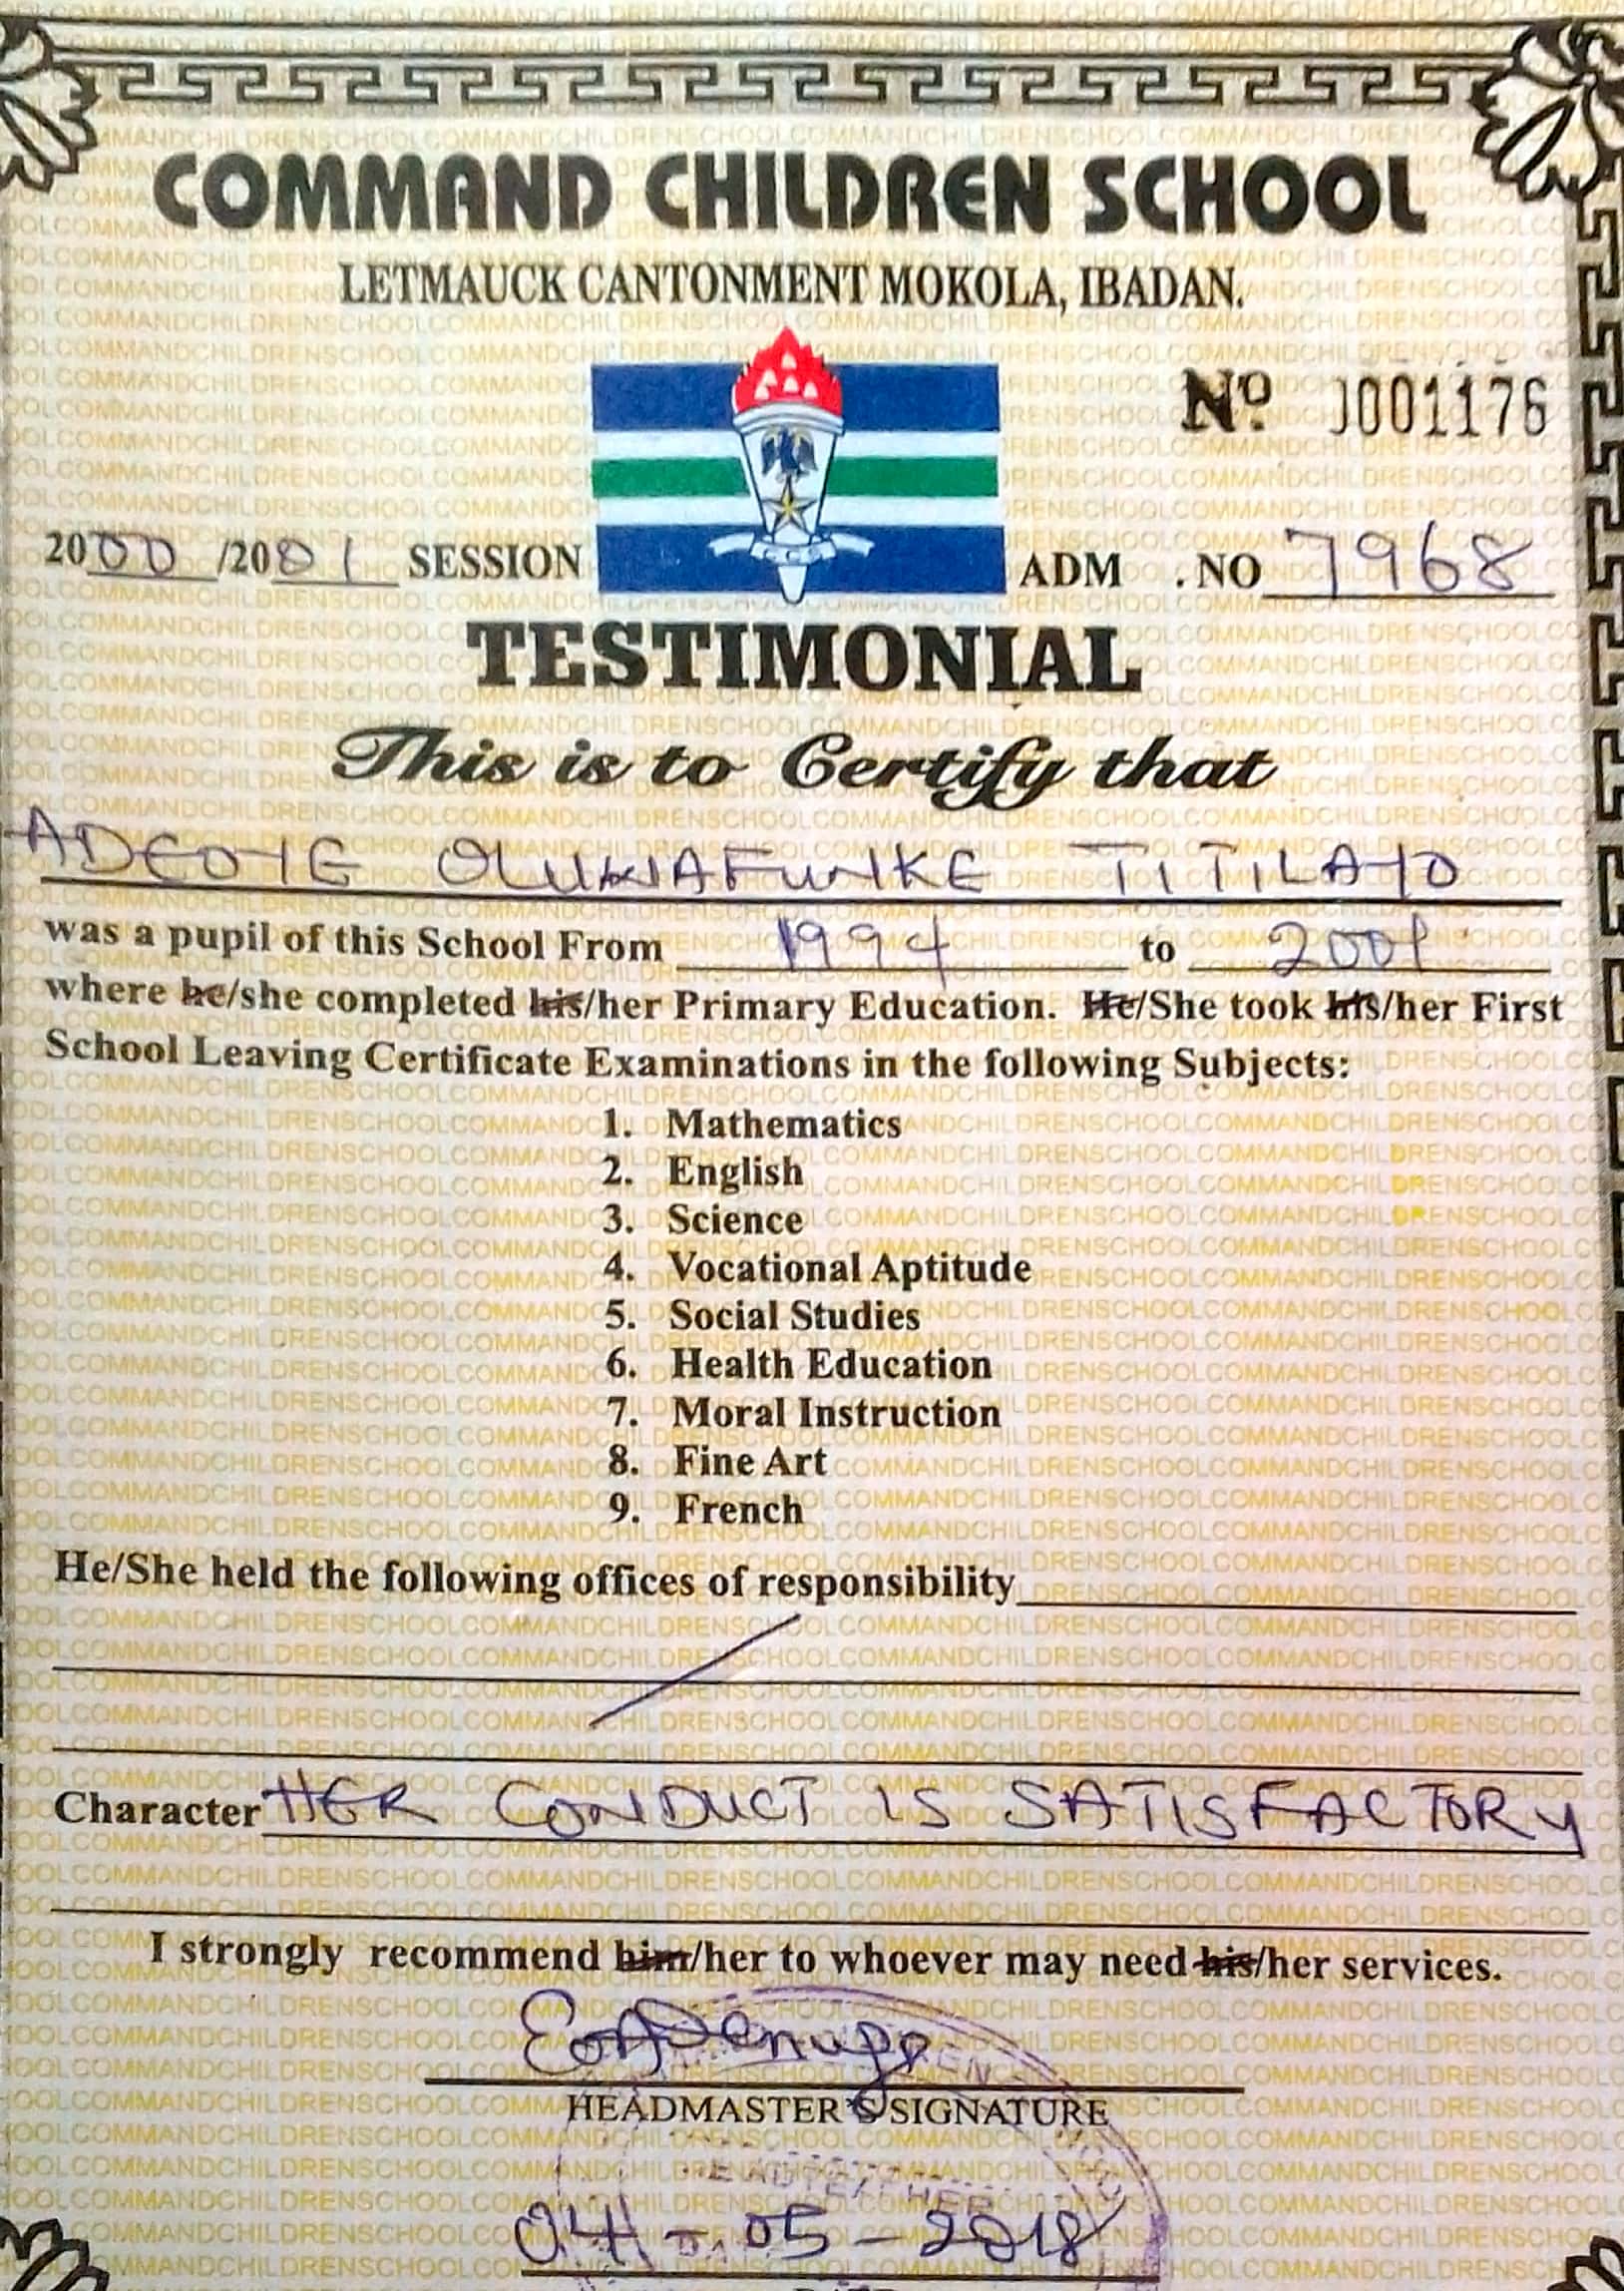 COMMAND CHILDREN SCHOOL
LETMAUCK CANTONMENT MOKOLA, IBADAN.
Nº 0001176
2000/2001 SESSION
CCS
ADM . NO 7968
TESTIMONIAL
This is to Certify that
ADEOYE OLUWAFUNKE TITILAYO
was a pupil of this School From 1994 to 2001
where he/she completed his/her Primary Education. He/She took his/her First
School Leaving Certificate Examinations in the following Subjects:
1. Mathematics
2. English
3. Science
4. Vocational Aptitude
5. Social Studies
6. Health Education
7. Moral Instruction
8. Fine Art
9. French
He/She held the following offices of responsibility
Character HER CONDUCT IS SATISFACTORY
I strongly recommend him/her to whoever may need his/her services.
HEADMASTER'S SIGNATURE
HEADTEACHER
04-05-2018
DATE